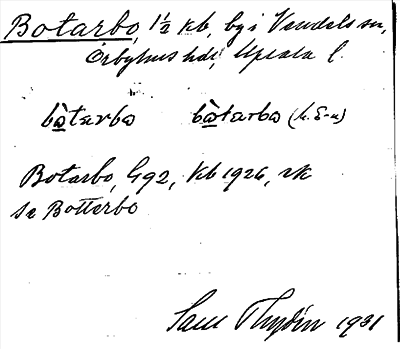 Botarbo, 1½ kb, by i Vendels sn,
Örbyhus hd, Upsala l.
bòtarbo bòtarbo (h. E-u)
Botarbo, G92, Kb 1926, rk
se Botterbo
Sam Thydén 1931